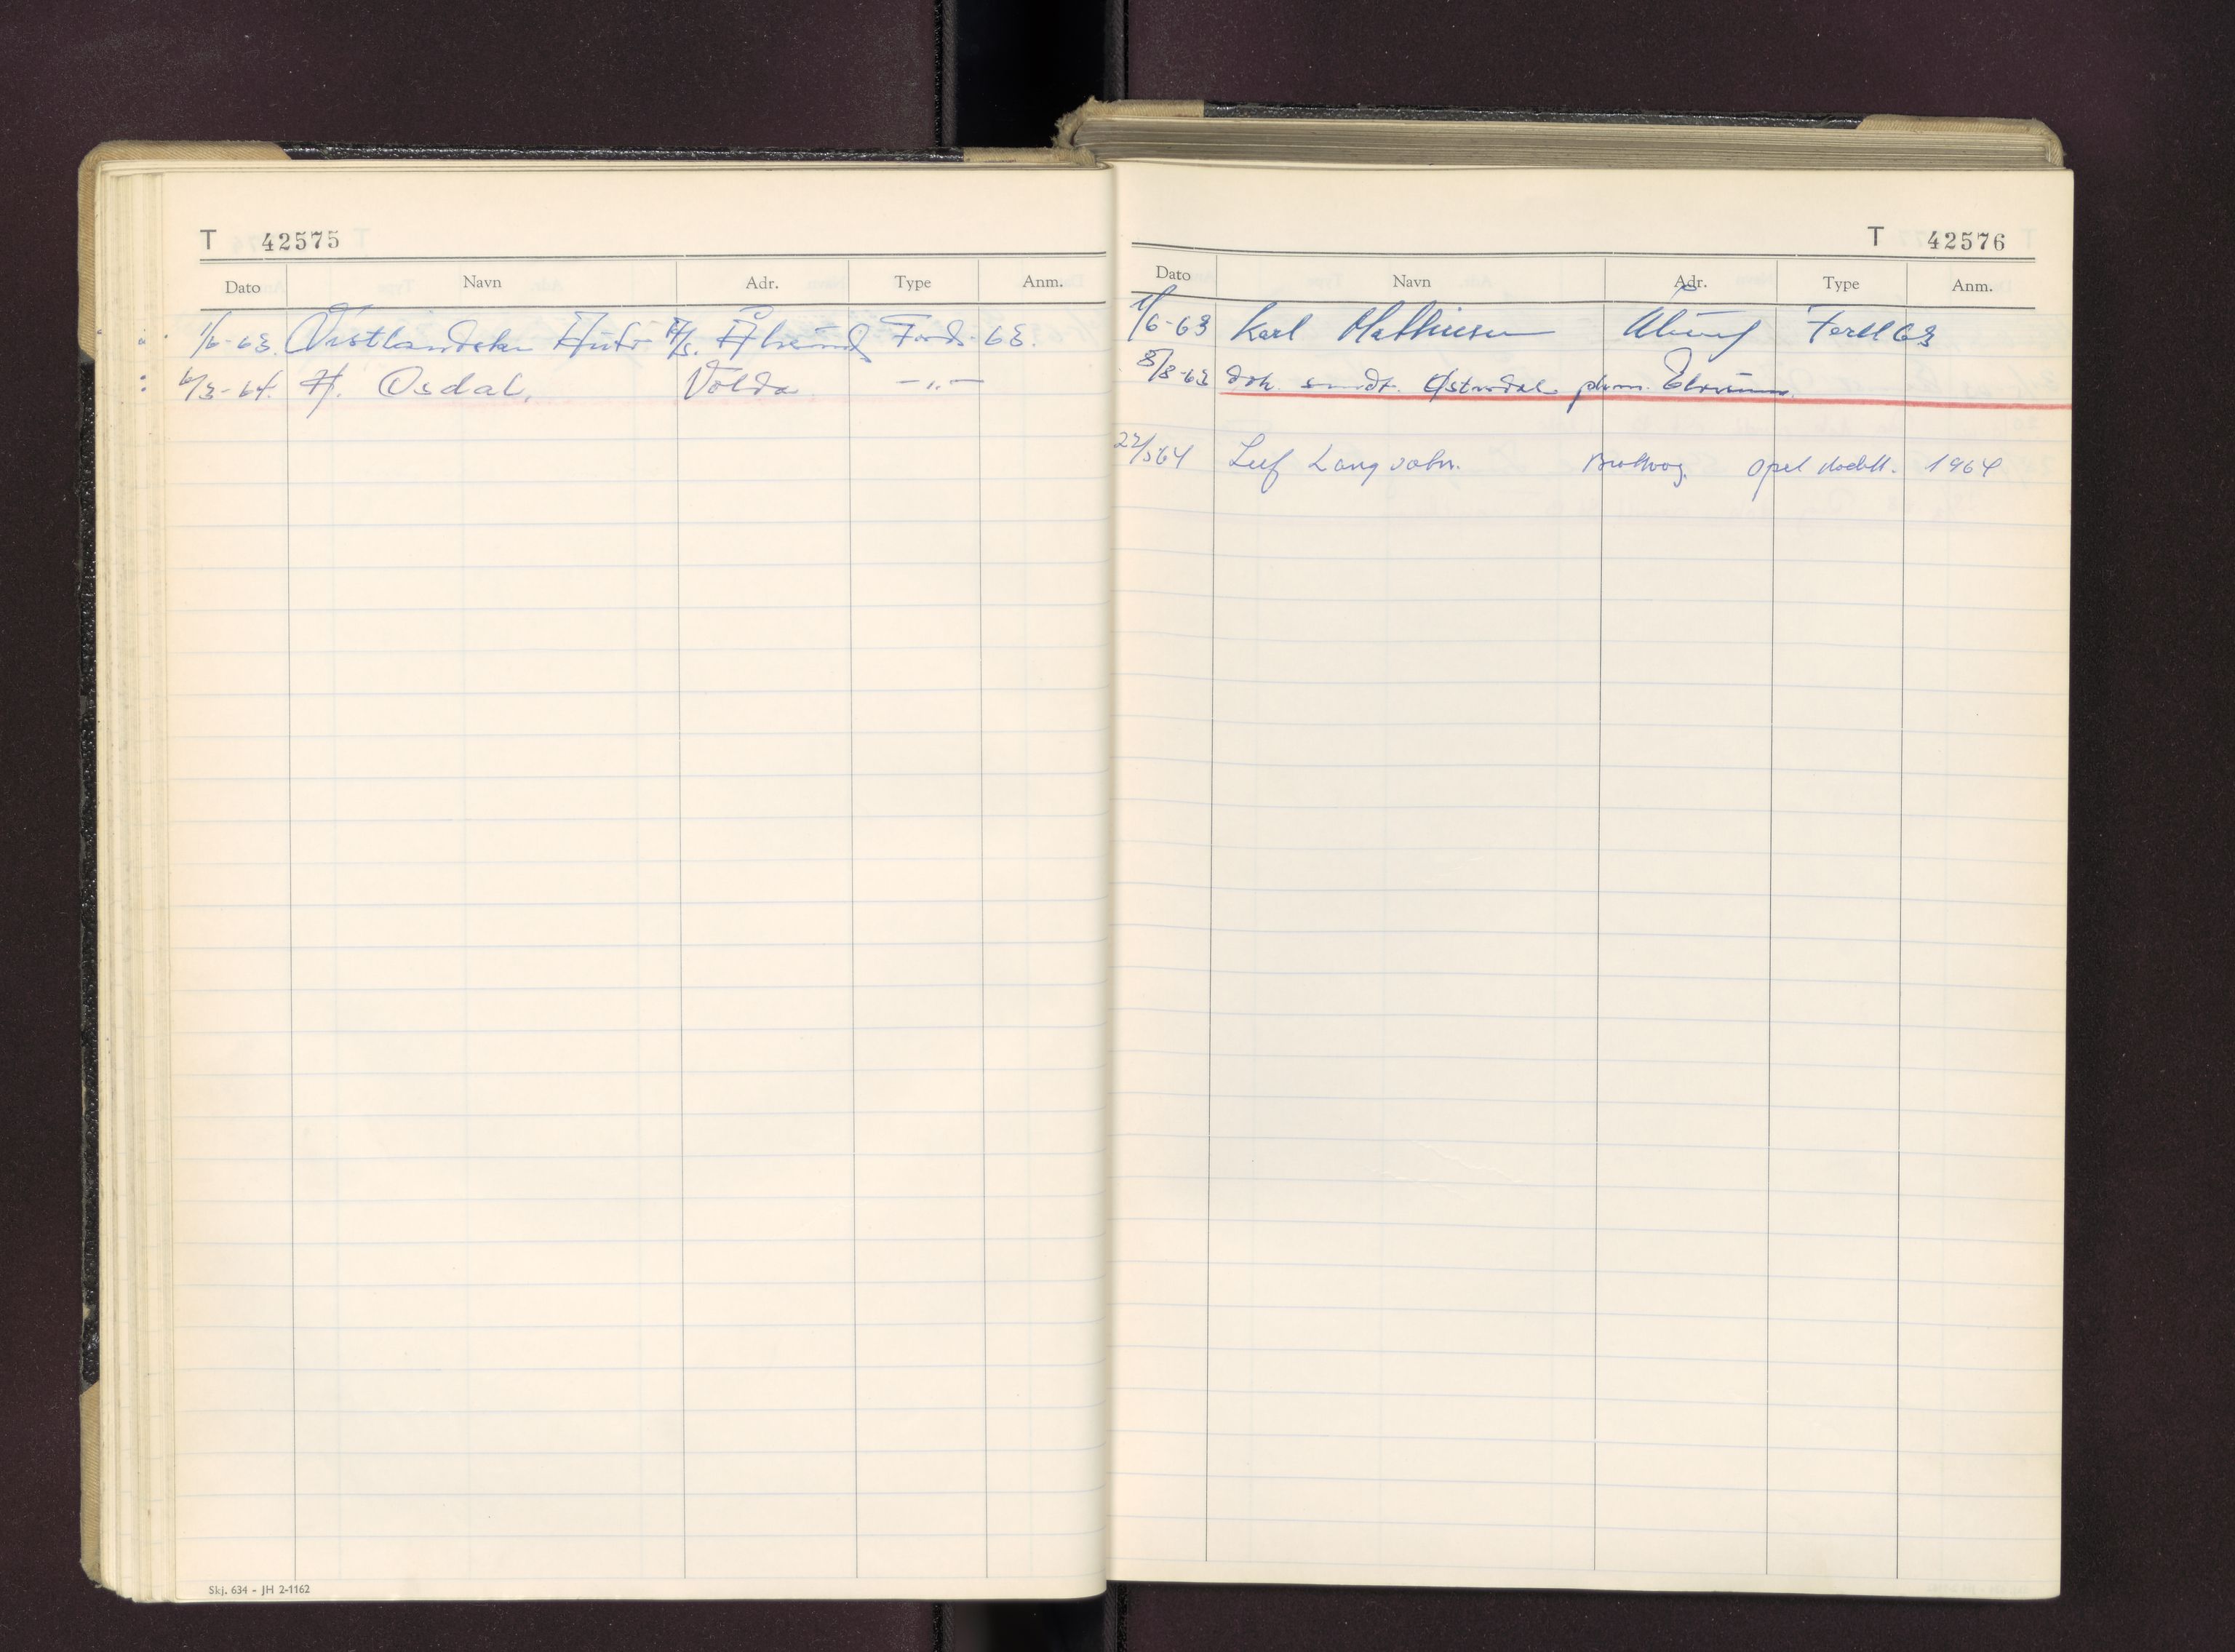 T 42575
Dato Navn Adr. Type Anm.
1/6-63. Vestlandske Auto A/S. Ålesund Ford. 63.
6/3-64. H. Osdal, Volda -"-
Skj. 634 - JH 2-1162
T 42576
Dato Navn Adr. Type Anm.
1/6-63 Karl Mathiesen Ålesund Ford 63
8/8-63 dok. sendt. Østerdal pkm. Elverum.
22/5 64 Leif Langvatn. Brattvåg. Opel Kadett. 1964